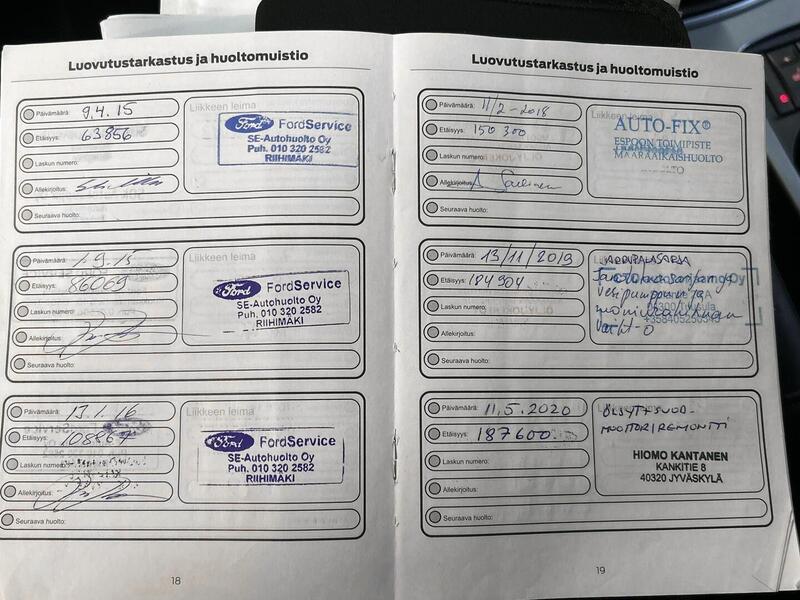 Luovutustarkastus ja huoltomuistio
Päivämäärä: 9.4.15
Etäisyys: 63856
Laskun numero:
Allekirjoitus:
Seuraava huolto:
Liikkeen leima
Ford FordService
SE-Autohuolto Oy
Puh. 010 320 2582
RIIHIMÄKI
Päivämäärä: 1.9.15
Etäisyys: 86069
Laskun numero:
Allekirjoitus:
Seuraava huolto:
Liikkeen leima
Ford FordService
SE-Autohuolto Oy
Puh. 010 320 2582
RIIHIMÄKI
Päivämäärä: 13.1.16
Etäisyys: 108867
Laskun numero:
Allekirjoitus:
Seuraava huolto:
Liikkeen leima
Ford FordService
SE-Autohuolto Oy
Puh. 010 320 2582
RIIHIMÄKI
18
Luovutustarkastus ja huoltomuistio
Päivämäärä: 11/2-2018
Etäisyys: 150 300
Laskun numero:
Allekirjoitus:
Seuraava huolto:
Liikkeen leima
AUTO-FIX®
ESPOON TOIMIPISTE
MÄÄRÄAIKAISHUOLTO
Päivämäärä: 13/11/2019
Etäisyys: 184904
Laskun numero:
Allekirjoitus:
Seuraava huolto:
vesipumpun ja
+358405250543
Päivämäärä: 11.5.2020
Etäisyys: 187600
Laskun numero:
Allekirjoitus:
Seuraava huolto:
MOOTTORIREMONTTI
HIOMO KANTANEN
KANKITIE 8
40320 JYVÄSKYLÄ
19